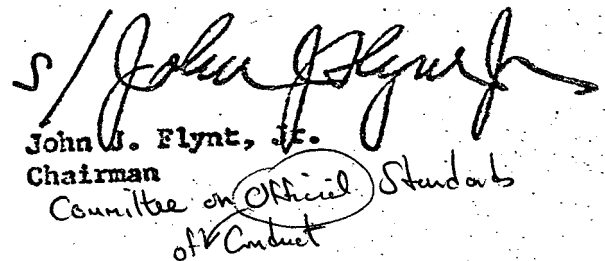 S/ John J Flynt Jr
John J. Flynt, Jr.
Chairman
Committee on Official Standards
of Conduct